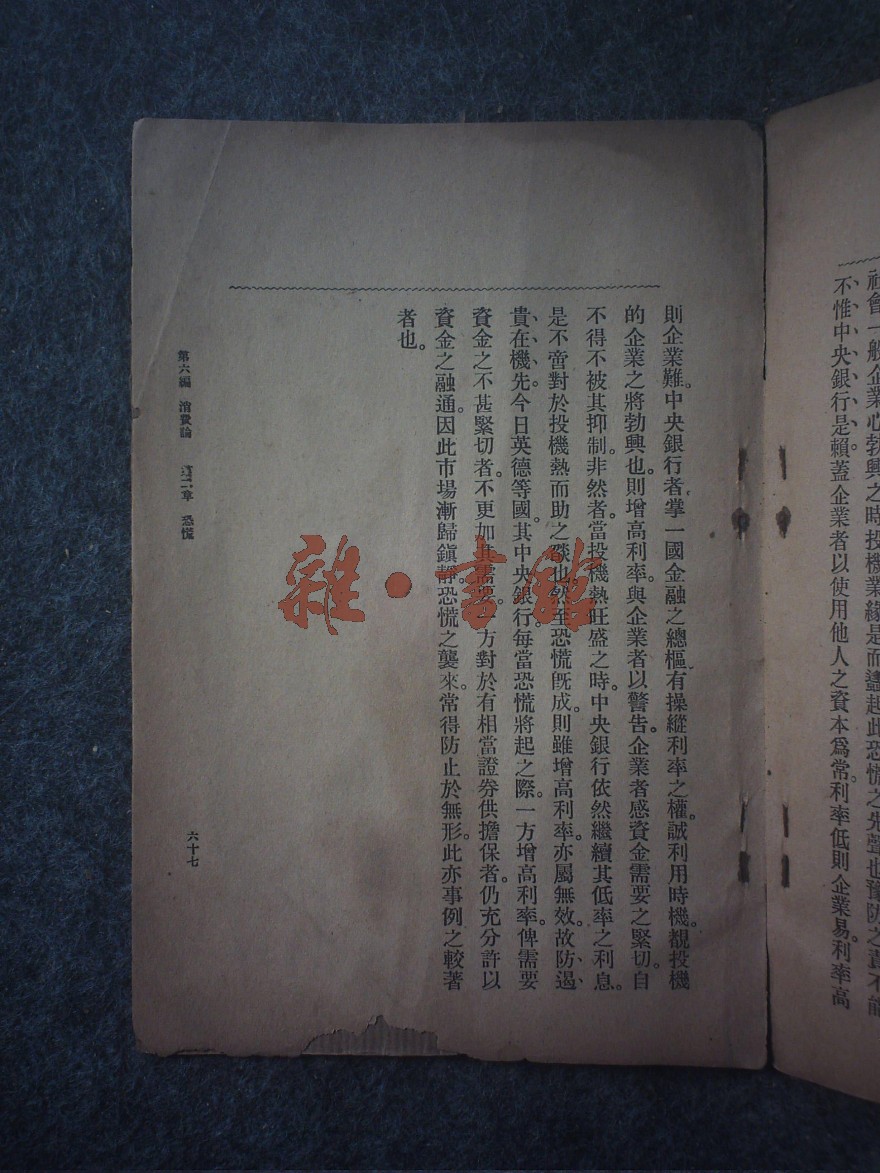 社會一般企業心勃興之時投機業緣是而蠭起此恐慌之先聲也豫防之責不能
不惟中央銀行是賴蓋企業者以使用他人之資本爲常利率低則企業易利率高
則企業難。中央銀行者掌一國金融之總樞有操縱利率之權。誠利用時機。覩投機
的企業之將勃興也。則增高利率。與企業者以警告。企業者感資金需要之緊切。自
不得不被其抑制。非然者。當投機熱旺盛之時。中央銀行依然繼續其低率之利息。
是不啻對於投機熱而助之燄也。然至恐慌旣成。則雖增高利率。亦屬無效。故防遏、
貴、在、機、先。今日英德等國。其中央銀行。每當恐慌將起之際。一方增高利率。俾需要
資金之不甚緊切者。不更加其需要。一方對於有相當證券供擔保者。仍充分許以
資金之融通。因此市場漸歸鎭靜。恐慌之襲來。常得防止於無形。此亦事例之較著
者也。
第六編 消費論 第三章 恐慌
六十七
雜·書館